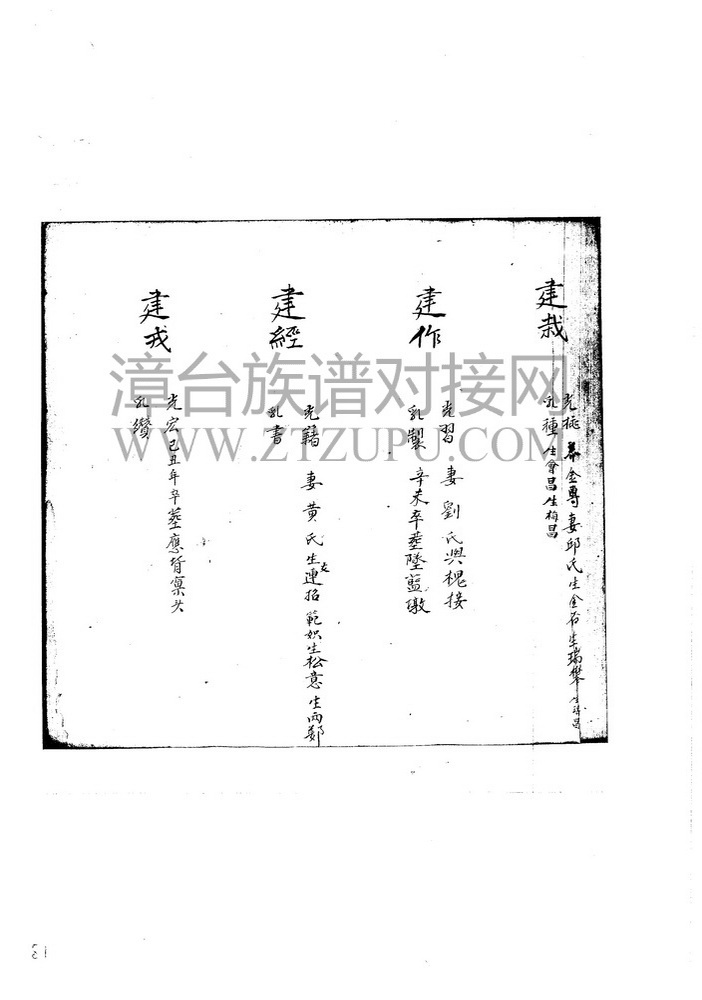 建栽
光 金專妻邱氏生金石生瑞攀生 昌
乳種 生會昌生梅昌
建作
光習 妻劉氏與槐接
乳製 辛未卒葬墜藍墩
建經
光籍 妻黃氏生連招 範 生松意生両鄭
乳書
建戎
光宏己丑年卒葬應背窠头
乳纘
漳台族谱对接网
WWW.ZTZUPU.COM